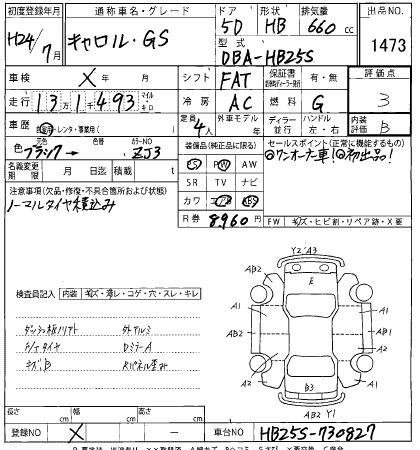 初度登録年月 通称車名・グレード ドア 形状 排気量 出品NO
H24/7月 キャロル・GS 5D HB 660cc 1473
型式
DBA-HB25S
車検 X 年 月 シフト FAT 保証書 有・無 評価点
走行 131493 マイル キロ 冷房 AC 燃料 G 3
車歴 自家用・レンタ・事業用( ) 定員 4人 外車モデル 年 ディーラー 並行 ハンドル 左・右 内装評価 B
元色 ブラック → 色替 カラーNO ZJ3 装備品(純正品に限る) セールスポイント(正常に機能するもの)
名義変更期限 月 日迄 積載 t PS PW AW ◎ワンオーナー車!◎初出品!
SR TV ナビ
注意事項(欠品・修復・不具合箇所および状態) カワ エアB ABS
ノーマルタイヤ積込み R券 8,960円 FW キズ・ヒビ割・リペア跡・X要
Y2 A3
AB2 E A1
検査員記入 内装 キズ・濡レ・コゲ・穴・スレ・キレ
A1 AB2
外アルミ AB2 A2
F/Tタイヤ DミラーA
キズB Rパネル歪み A2 A2
B3
AB2 Y1
長さ cm 幅 cm 高さ cm
登録NO X ー 車台NO HB25S-730827